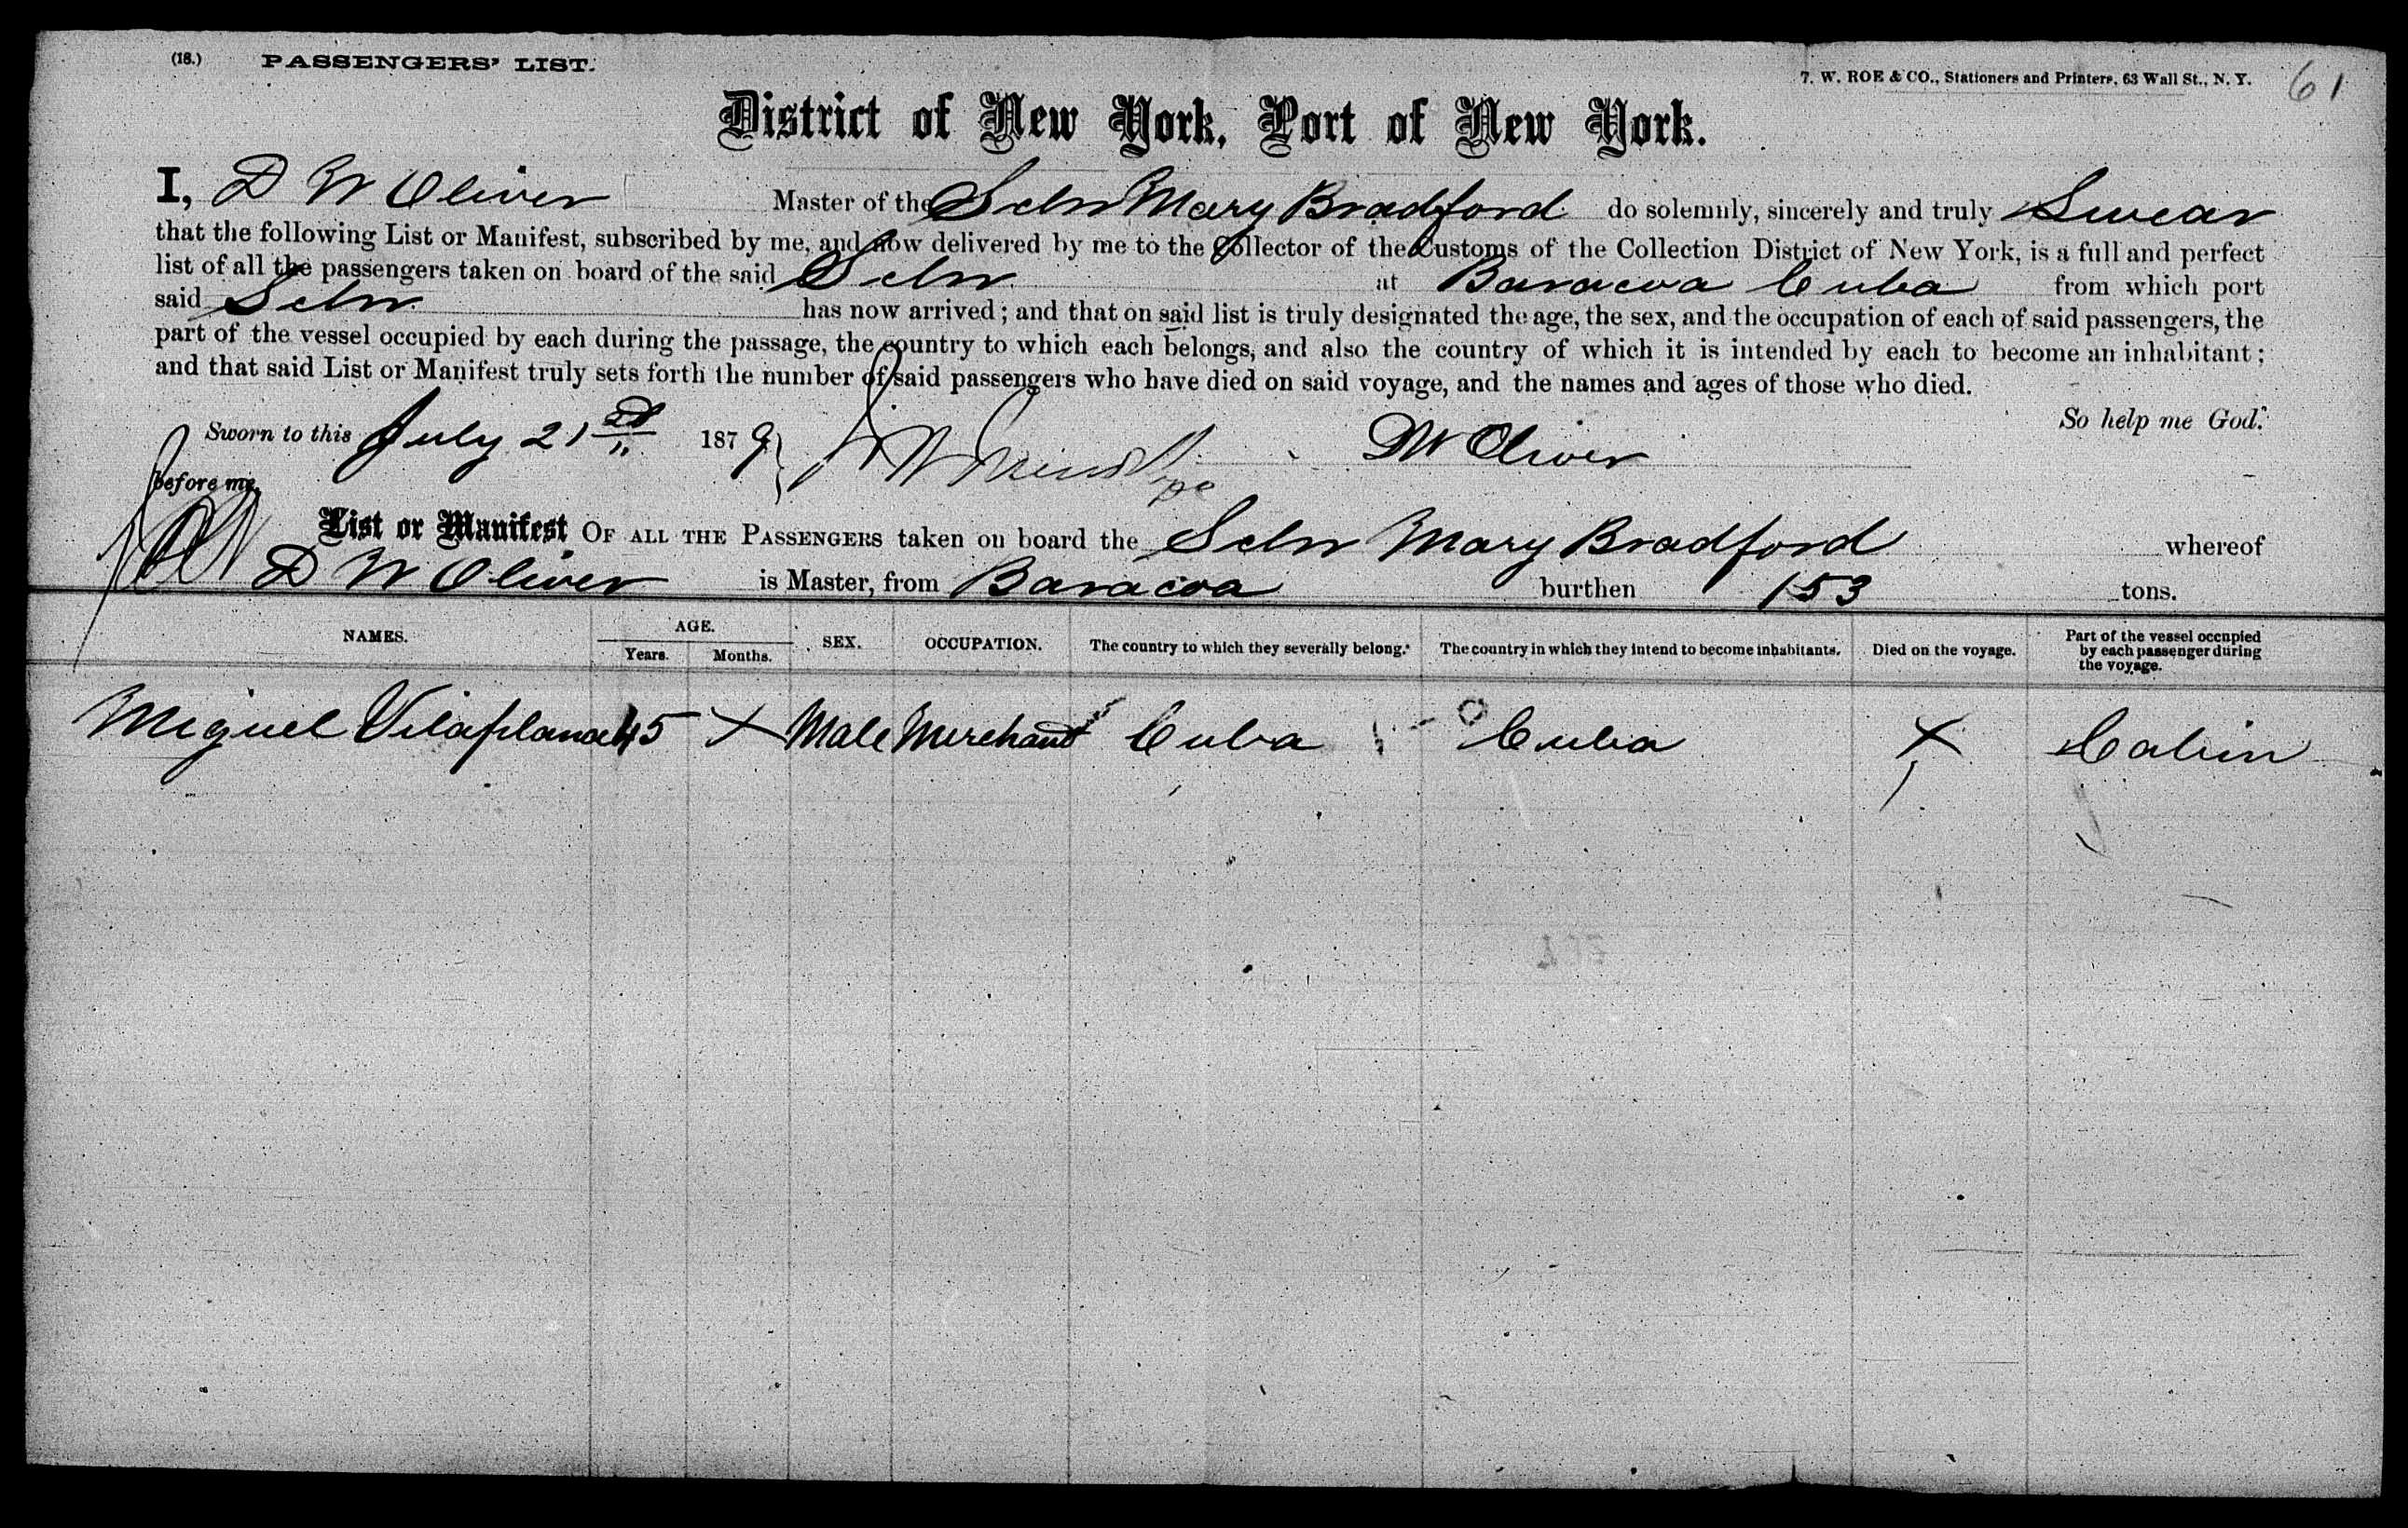 (18.) PASSENGERS' LIST.
7. W. ROE & CO., Stationers and Printers, 63 Wall St., N. Y. 61
District of New York, Port of New York.
I, D W Oliver Master of the Schr Mary Bradford do solemnly, sincerely and truly Swear
that the following List or Manifest, subscribed by me, and now delivered by me to the Collector of the Customs of the Collection District of New York, is a full and perfect
list of all the passengers taken on board of the said Schr at Baracoa Cuba from which port
said Schr has now arrived; and that on said list is truly designated the age, the sex, and the occupation of each of said passengers, the
part of the vessel occupied by each during the passage, the country to which each belongs, and also the country of which it is intended by each to become an inhabitant;
and that said List or Manifest truly sets forth the number of said passengers who have died on said voyage, and the names and ages of those who died.
So help me God.
Sworn to this July 21st 1879 DW Oliver
before me,
List or Manifest OF ALL THE PASSENGERS taken on board the Schr Mary Bradford whereof
D W Oliver is Master, from Baracoa burthen 153 tons.
NAMES. AGE. Years. Months. SEX. OCCUPATION. The country to which they severally belong. The country in which they intend to become inhabitants. Died on the voyage. Part of the vessel occupied by each passenger during the voyage.
Miguel Vilaplana 45 X Male Merchant Cuba Cuba X Cabin